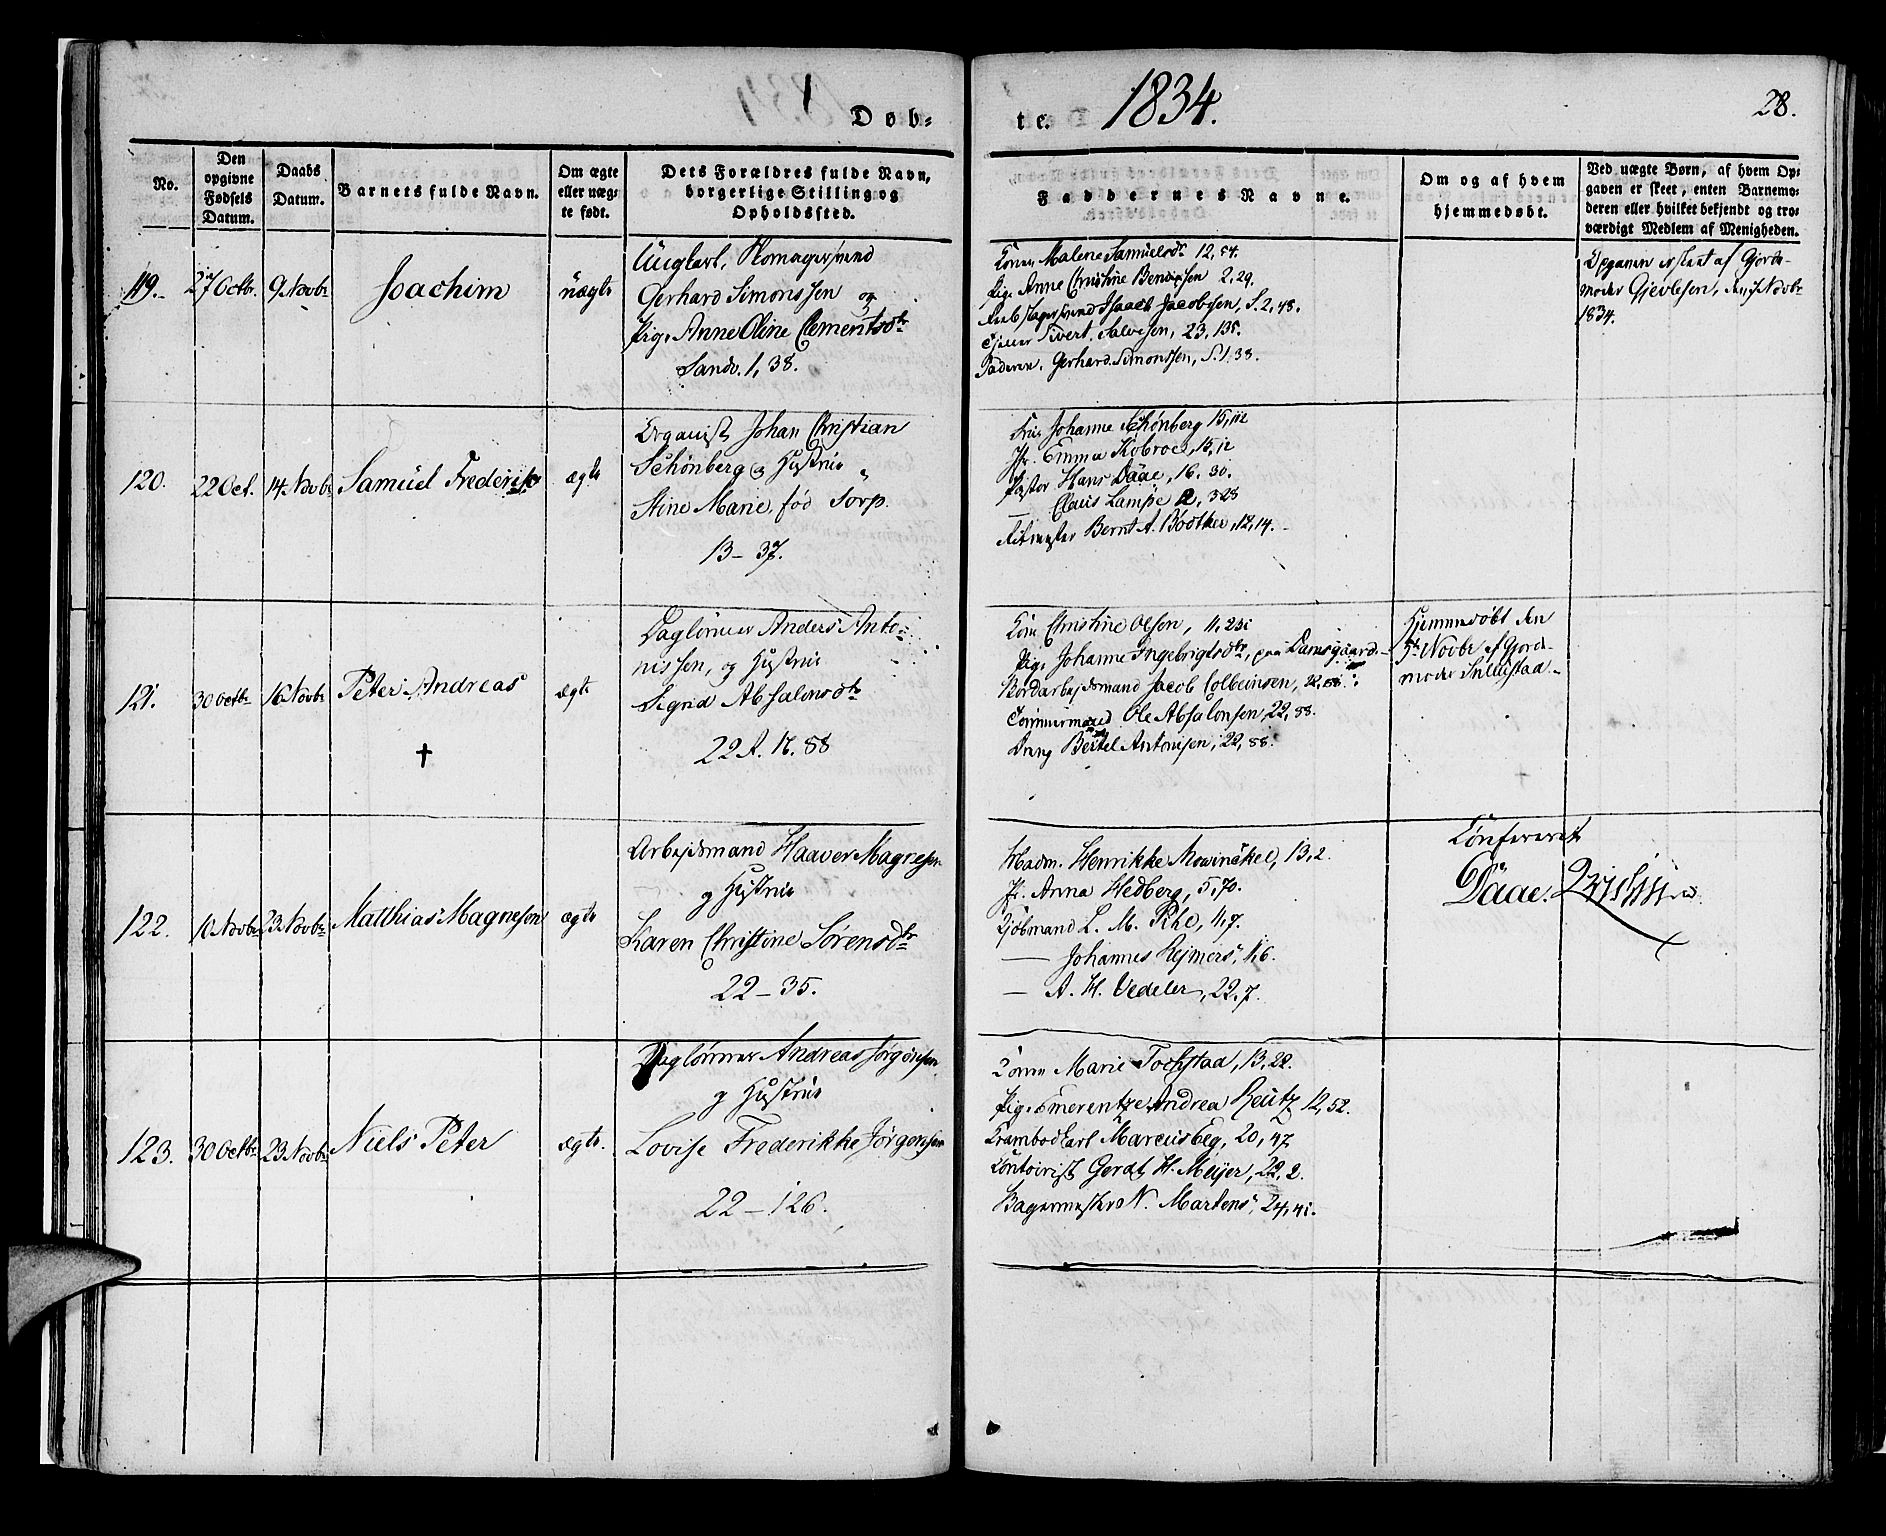 1834.
28.
Døb=
te.
No.
Den opgivne Fødsels Datum.
Daabs Datum.
Barnets fulde Navn.
Om ægte eller uægte født.
Dets Forældres fulde Navn, borgerlige Stilling og Opholdssted.
Faddernes Navne.
Om og af hvem hjemmedøbt.
Ved uægte Børn, af hvem Opgaven er skeet, enten Barnemoderen eller hvilket bekjendt og troværdigt Medlem af Menigheden.
119.
27 Octbr.
9 Novbr
Joachim
uægte
Ungkarl, Skomagersvend
Gerhard Simonssen og
Pig. Anne Oline Clementsdtr
Sandv. 1, 38.
Konen Malene Samuelsdtr 12, 54.
Pig. Anne Christine Bendixsen 2, 29.
Isaach Jacobsen, S. 2, 48.
Tjener Sivert Salvesen, 23, 135.
Faderen, Gerhard Simonssen, S. 1. 38.
Opgaven er skeet af Gjorde-
moder Gjevlesen, den Novbr
1834.
120.
22 Oct.
14 Novbr
Samuel Frederik
ægte
Organist Johan Christian
Schönberg og Hustrue
Stine Marie, fød Torp.
13 – 37.
Frue Johanne Schönberg 15,
Jfr. Emma Kobroe, 15, 12
Pastor Hans Daae, 16. 30.
— Claus Lampe 2, 328
Ritmester Bernt A. Bødtker, 12, 14.
121.
30 Octbr
16 Novbr
Peter Andreas
†
ægte
Daglønner Anders Anto-
nissen, og Hustrue
Sigrid Absalonsdtr
22 A. 17. 88
Kone Christine Olsen, 11, 231
Pig. Johanne Ingebrigtsdtr, paa Damsgaard.
Nordarbejdsmand Jacob Colbeinsen, 22, 88.
Tømmermand Ole Absalonsen, 22, 88.
Dreng Bertel Antonisen, 22, 88.
Hjemmedøbt den
5te Novbr af Gjorde-
moder
122.
10 Novbr
23 Novbr
Matthias Magnesen
ægte
Arbejdsmand Haaver Magnesen
og Hustrue
Karen Christine Sørensdtr
22 – 35.
Madm. Henrikke Mowinckel, 13, 2.
Jfr. Anna Hedberg, 5, 70.
Kjøbmand L. M. Pihl, 11, 7.
— Johannes Rejmers, 11, 6.
— A. H. Vedeler, 22, 7.
Confereret
Daae.
123.
30 Octbr
23 Novbr
Niels Peter
ægte.
Daglønner Andreas Jørgensen
og Hustrue
Lovise Frederikke Jørgensen
22 – 126.
Konen Marie Tochstad, 13, 22.
Pig. Emerentze Andrea Reutz 12, 52.
Krambodkarl Marcus Geg, 20, 47.
Contoirist Gerdt H. Meyer, 22, 2.
Bagermester N. Martens, 24, 41.